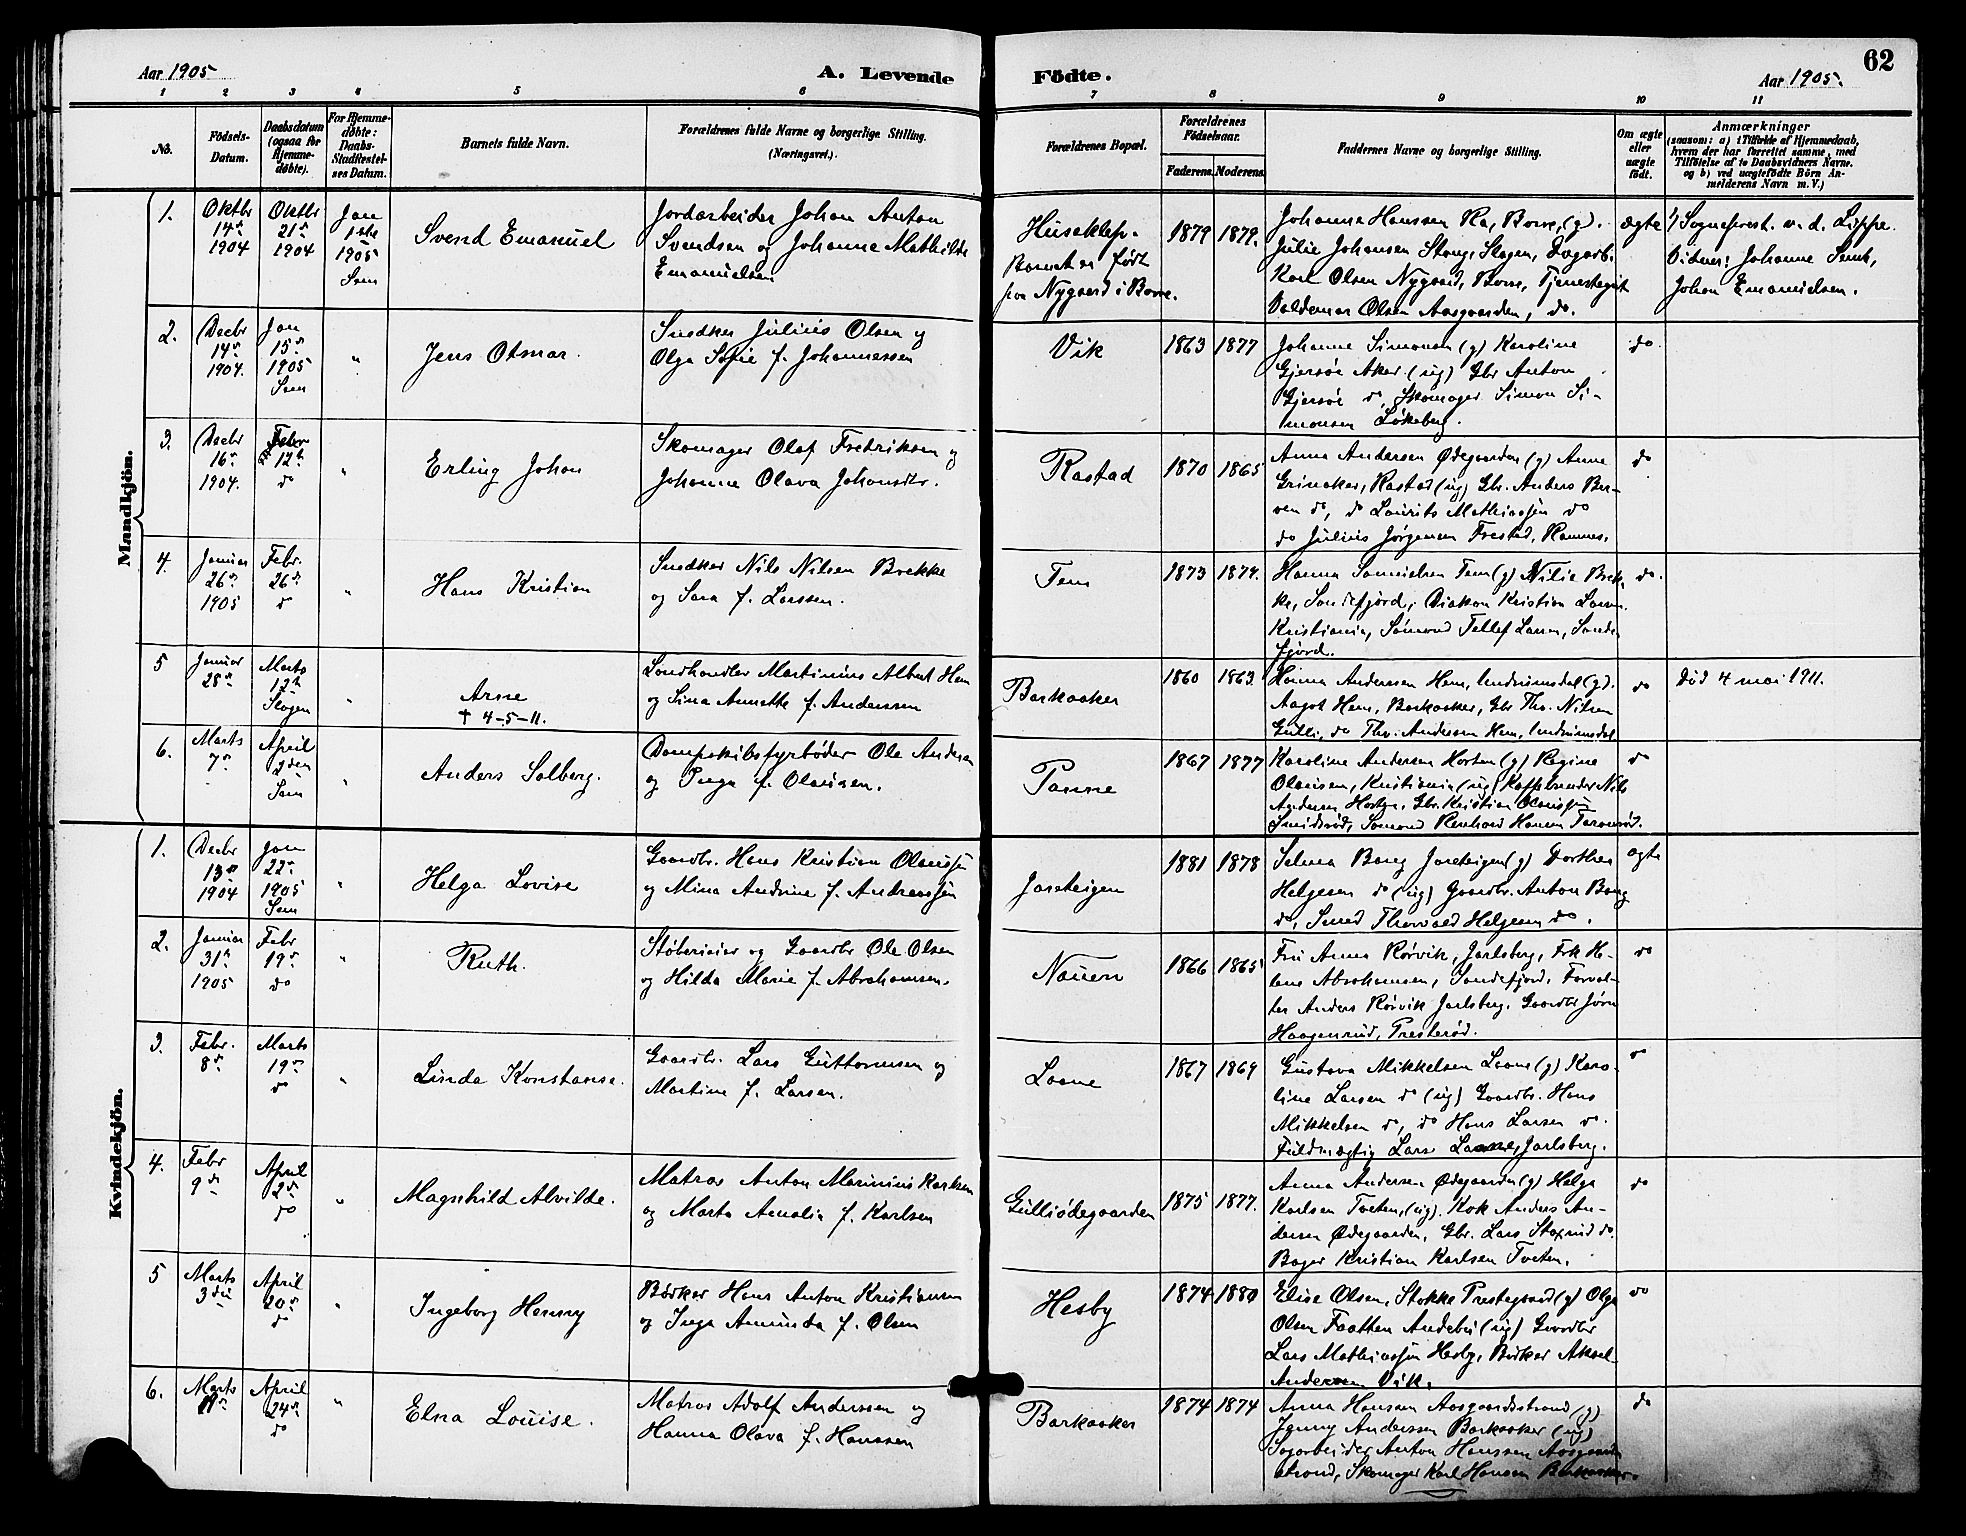 Aar 1905
A. Levende
Födte.
Aar 1905.
62
1 2 3 4 5 6 7 8 9 10 11
No.
Födsels-
Datum.
Daabsdatum
(ogsaa for
Hjemme-
döbte).
For Hjemme-
döbte:
Daabs-
Stadfæstel-
ses Datum.
Barnets fulde Navn.
Forældrenes fulde Navne og borgerlige Stilling.
(Næringsvei.)
Forældrenes Bopæl.
Forældrenes
Födselsaar.
Faderens. Moderens.
Faddernes Navne og borgerlige Stilling.
Om ægte
eller
uægte
født.
Anmærkninger
(saasom: a) i Tilfælde af Hjemmedaab,
hvem der har forrettet samme, med
Tilföielse af to Daabsvidners Navne.
og b) ved uægtefödte Börn An-
melderens Navn m. V.)
Mandkjön.
1.
Oktbr
14de
1904
Oktbr
21de
1904
Jan
1ste
1905
Sem
Svend Emanuel
Jordarbeider Johan Anton
Svendsen og Johanne Mathilde
Emanuelsen
Huseklep.
Barnet er født
paa Nygaard i Borre.
1879 1879.
Johanne Hanssen Ra, Borre, (g).
Julie Johansen Stang, Slagen, Dagarb.
Karl Olsen Nygaard, Borre, Tjenestegut
Valdemar Olsen Aasgaarden, do.
ægte
1) Sogneprest v. d. Lippe.
Vidner: Johanne Semb,
Johan Emanuelsen.
2.
Decbr
14de
1904.
Jan
15de
1905
Sem
"
Jens Otmar.
Snedker Julius Olsen og
Olga Sofie f. Johannessen
Vik
1863 1877
Johanne Simonsen (g) Karoline
Gjersøe Aker (ug) Gbr Anton
Gjersøe do, Skomager Simon Si-
monsen Løkeberg.
do
3.
Decbr
16de
1904.
Febr
12te
do
"
Erling Johan
Skomager Olaf Fredriksen og
Johanne Olava Johansdtr.
Rastad
1870 1865
Anna Andersen Ødegaarden (g) Anne
Grinaker, Rastad (ug) Gbr. Anders Ber-
ven do, do Laurits Mathiassen do
do Julius Jørgensen Frestad, Ramnes.
do
4.
Januar
26de
1905
Febr.
26de
do
"
Hans Kristian
Snedker Nils Nilsen Brekke
og Sara f. Larssen.
Tem
1873 1874.
Hanna Samuelsen Tem (g) Nilia Brek-
ke, Sandefjord, Diakon Kristian Larsen
Kristiania, Sømand Tellef Larsen, Sande-
fjord.
do.
5
Januar
28de
Marts
12te
Slagen
"
Arne
† 4-5-11.
Landhandler Martinius Albert Hem
og Sina Annette f. Anderssen
Barkaaker
1860 1863
Hanna Anderssen Hem, Undrumsdal (g).
Aagot Hem, Barkaaker, Gbr Thv. Nilsen
Gulli, do Thv. Andersen Hem, Undrumsdal
do
Død 4 mai 1911.
6.
Marts
7de
April
2den
Sem
"
Anders Solberg.
Dampskibsfyrbøder Ole Andersen
og Inga f. Olausen.
Panne
1867 1877
Karoline Andersen Horten (g) Regine
Olausen, Kristiania (ug) Kaffebrænder Nils
Andersen Horten, Gbr. Kristian Olaussen
Smidsrød, Sømand Reinhard Hansen Taranrød.
do
Kvindekjön.
1.
Decbr
13de
1904
Jan
22de
1905
Sem
"
Helga Lovise
Gaardbr. Hans Kristian Olaussen
og Mina Andrine f. Andreassen
Jareteigen
1881 1878
Selma Bang Jareteigen (g) Dorthea
Helgesen do (ug) Gaardbr. Anton Bang
do, Smed Thorvald Helgesen do.
ægte
2.
Januar
31te
1905
Febr
19de
do
"
Ruth.
Støberieier og Gaardbr Ole Olsen
og Hilda Marie f. Abrahamsen.
Nauen
1866 1865
Fru Anna Rørvik, Jarlsberg, Frk He-
lene Abrahamsen, Sandefjord, Forval-
ter Anders Rørvik Jarlsberg. Gaardbr Jørn
Haagenrud, Presterød.
do
3.
Febr.
8de
Marts
19de
do
"
Linda Konstanse.
Gaardbr. Lars Guttormsen og
Martine f. Larsen.
Laane
1867 1869
Gustava Mikkelsen Laane (g) Karo-
line Larsen do (ug) Gaardbr. Hans
Mikkelsen do, do Hans Larsen do.
Fuldmægtig Lars Laane, Jarlsberg.
do
4.
Febr
9de
April
2de
do
"
Magnhild Alvilde.
Matros Anton Marinius Karlsen
og Marta Amalia f. Karlsen
Gulliødegaarden
1875 1877.
Anna Andersen Ødegaarden (g) Helga
Karlsen Tveten, (ug). Kok Anders An-
dersen Ødegaarden, Gbr. Lars Staxrud do.
Bager Kristian Karlsen Tveten.
do
5
Marts
3die
April
20de
do
"
Ingeborg Henny
Bødker Hans Anton Kristiansen
og Inga Amunda f. Olsen
Hesby
1874 1880
Elise Olsen, Stokke Prestegaard (g) Olga
Olsen Faatten Andebu (ug) Gaardbr
Lars Mathiassen Hesby, Bødker Aksel
Andersen Vik.
do
6.
Marts
11te
April
24de
do
"
Elna Louise.
Matros Adolf Anderssen og
Hanna Olava f. Hanssen
Barkaaker
1874 1874
Anna Hansen Aasgaardstrand (g)
Jenny Anderssen Barkaaker (ug)
Sagarbeider Anton Hanssen Aasgaard-
strand, Skomager Karl Hansen Barkaaker.
do